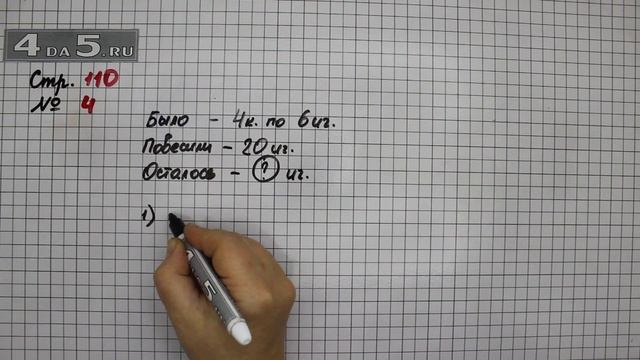 4 DA 5.RU
Стр. 110
№ 4
Было - 4к. по 6 иг.
Повесили - 20 иг.
Осталось - ? иг.
1)